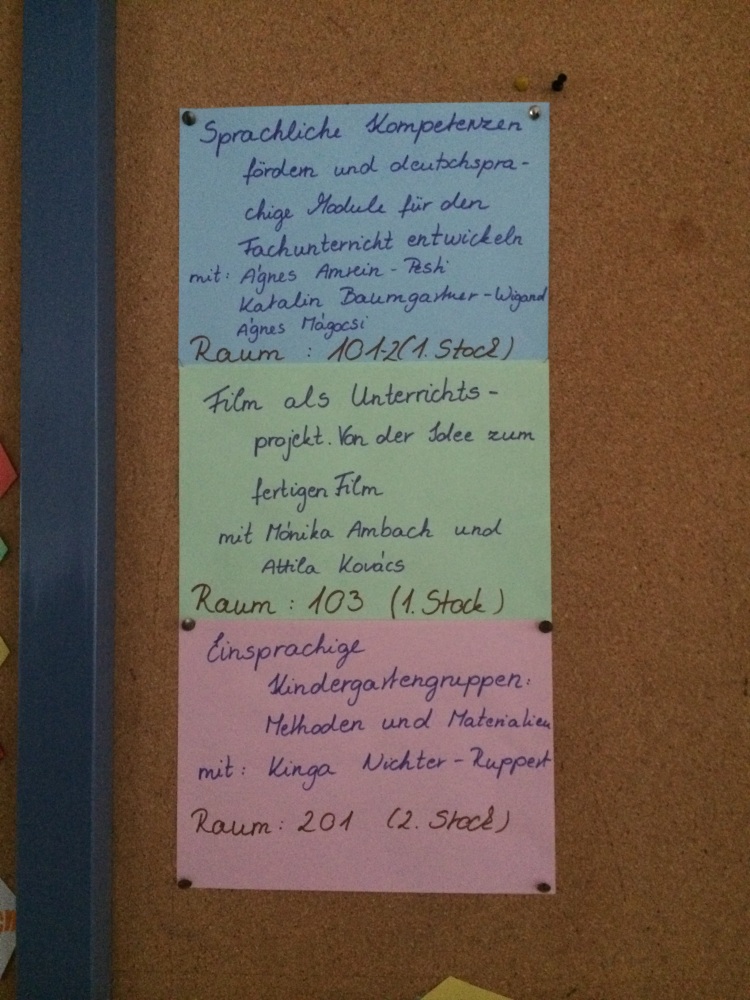 Sprachliche Kompetenzen
fördern und deutschspra-
chige Module für den
Fachunterricht entwickeln
mit: Ágnes Amrein-Pesti
Katalin Baumgartner-Wigand
Ágnes Mágocsi
Raum : 101-2 (1. Stock)
Film als Unterrichts-
projekt. Von der Idee zum
fertigen Film
mit Mónika Ambach und
Attila Kovács
Raum : 103 (1. Stock)
Einsprachige
Kindergartengruppen:
Methoden und Materialien
mit: Kinga Nichter-Ruppert
Raum: 201 (2. Stock)